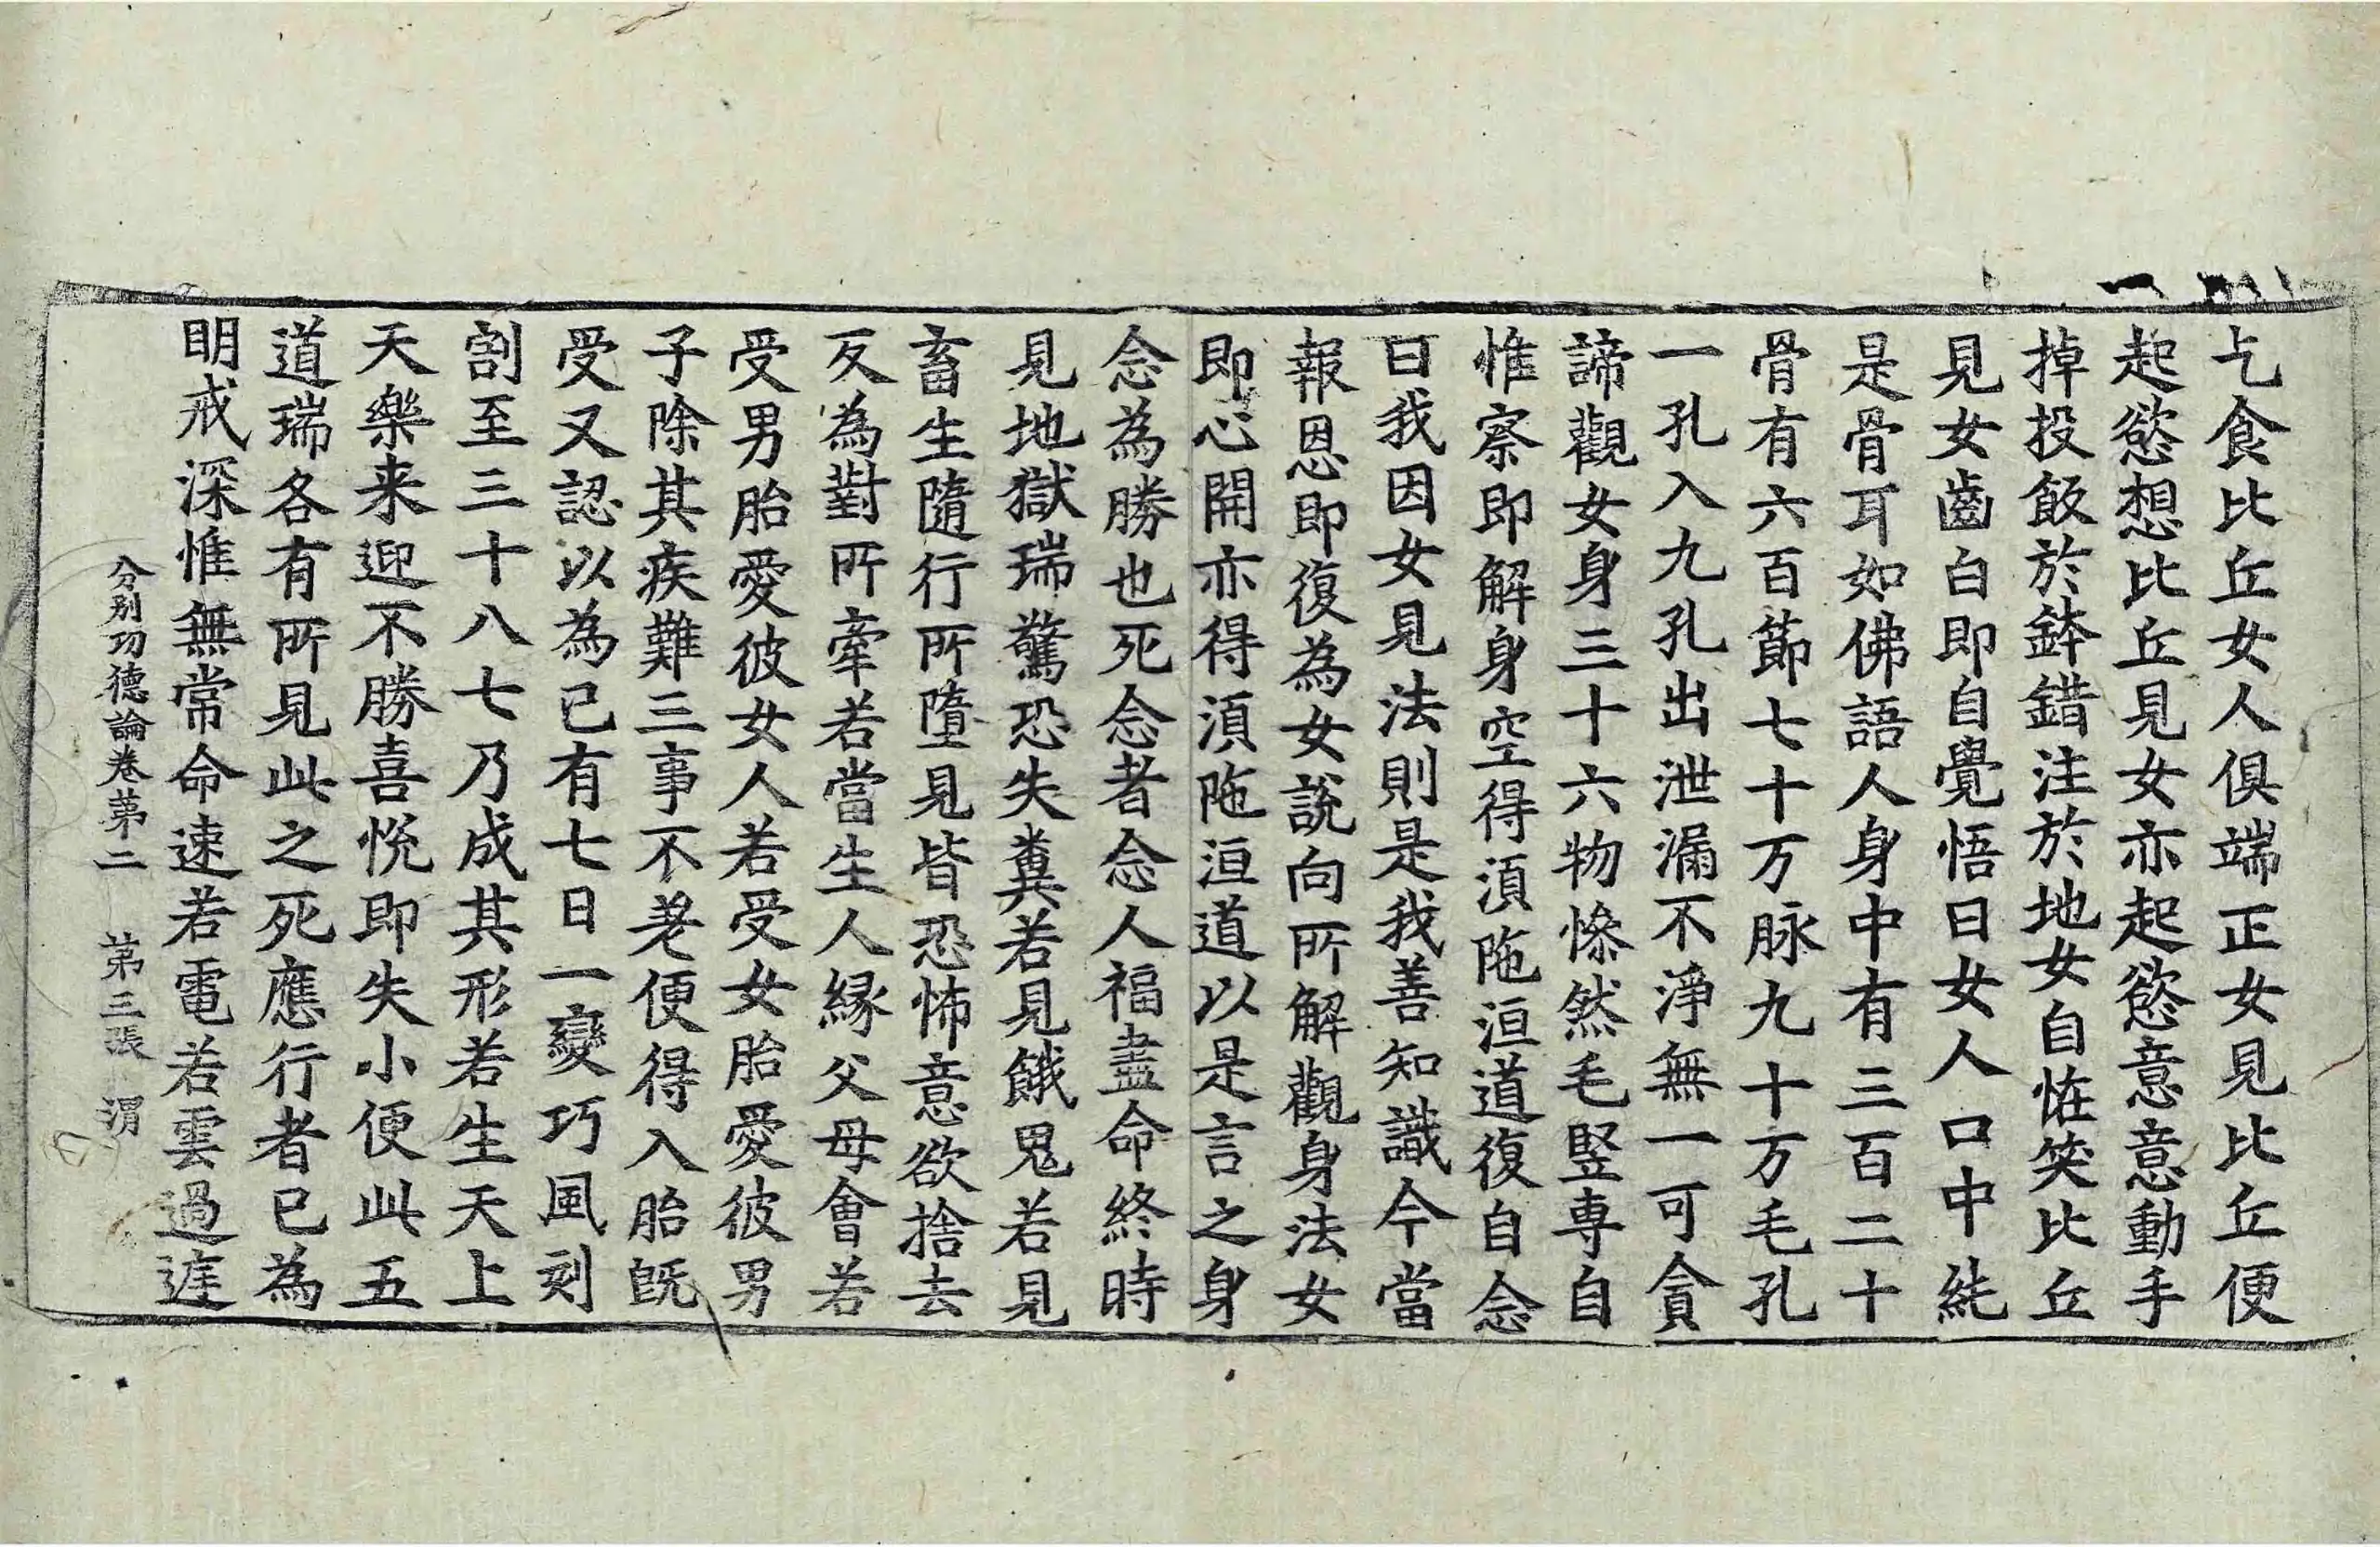 乞食比丘女人俱端正女見比丘便
起慾想比丘見女亦起慾意意動手
掉投飯於鉢錯注於地女自恠笑比丘
見女齒白即自覺悟曰女人口中純
是骨耳如佛語人身中有三百二十
骨有六百節七十万脉九十万毛孔
一孔入九孔出泄漏不淨無一可貪
諦觀女身三十六物慘然毛竪専自
惟察即解身空得湏陁洹道復自念
曰我因女見法則是我善知識今當
報恩即復為女說向所解觀身法女
即心開亦得湏陁洹道以是言之身
念為勝也死念者念人福盡命終時
見地獄瑞驚恐失糞若見餓鬼若見
畜生隨行所墮見皆恐怖意欲捨去
反為對所牽若當生人緣父母會若
受男胎愛彼女人若受女胎愛彼男
子除其疾難三事不差便得入胎旣
受又認以為己有七日一變巧風刻
割至三十八七乃成其形若生天上
天樂来迎不勝喜悅即失小便此五
道瑞各有所見此之死應行者已為
明戒深惟無常命速若電若雲過遮
分別功德論卷第二　第三張　渭